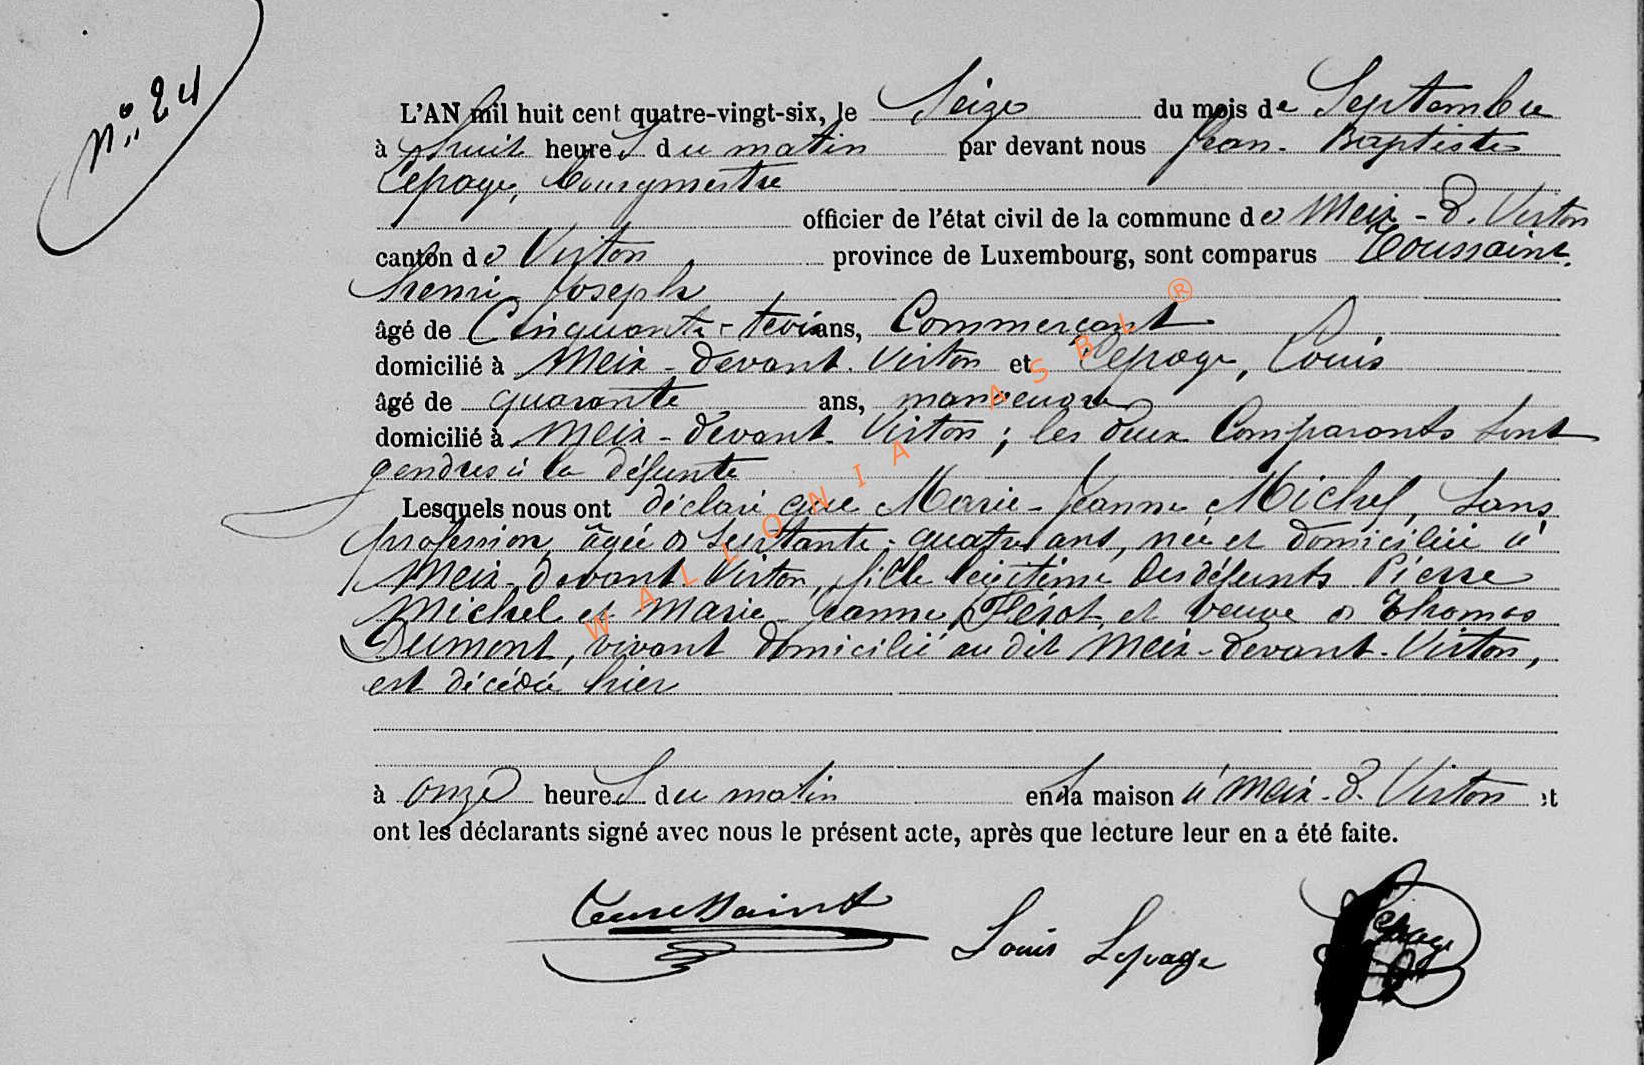 N° 24
L'AN mil huit cent quatre-vingt-six, le Seize du mois de Septembre
à huit heures du matin par devant nous Jean-Baptiste
Lepage, bourgmestre
officier de l'état civil de la commune de Meix-d. Virton
canton de Virton province de Luxembourg, sont comparus Toussaint,
henri Joseph
âgé de Cinquante-trois ans, Commerçant
domicilié à Meix-devant-Virton et Lepage, Louis
âgé de quarante ans, manœuvre
domicilié à Meix-devant-Virton; les deux Comparants sont
gendres à la défunte
Lesquels nous ont déclaré que Marie-Jeanne Michel, sans
profession, âgée de septante-quatre ans, née et domiciliée à
Meix-devant-Virton, fille légitime des défunts Pierre
Michel et Marie-Jeanne Hérot, et veuve de Thomas
Dumont, vivant domicilié au dit Meix-devant-Virton,
est décédée hier
à onze heures du matin en la maison à Meix-d-Virton et
ont les déclarants signé avec nous le présent acte, après que lecture leur en a été faite.
Toussaint Louis Lepage Lepage
WALLONIA ASBL ®